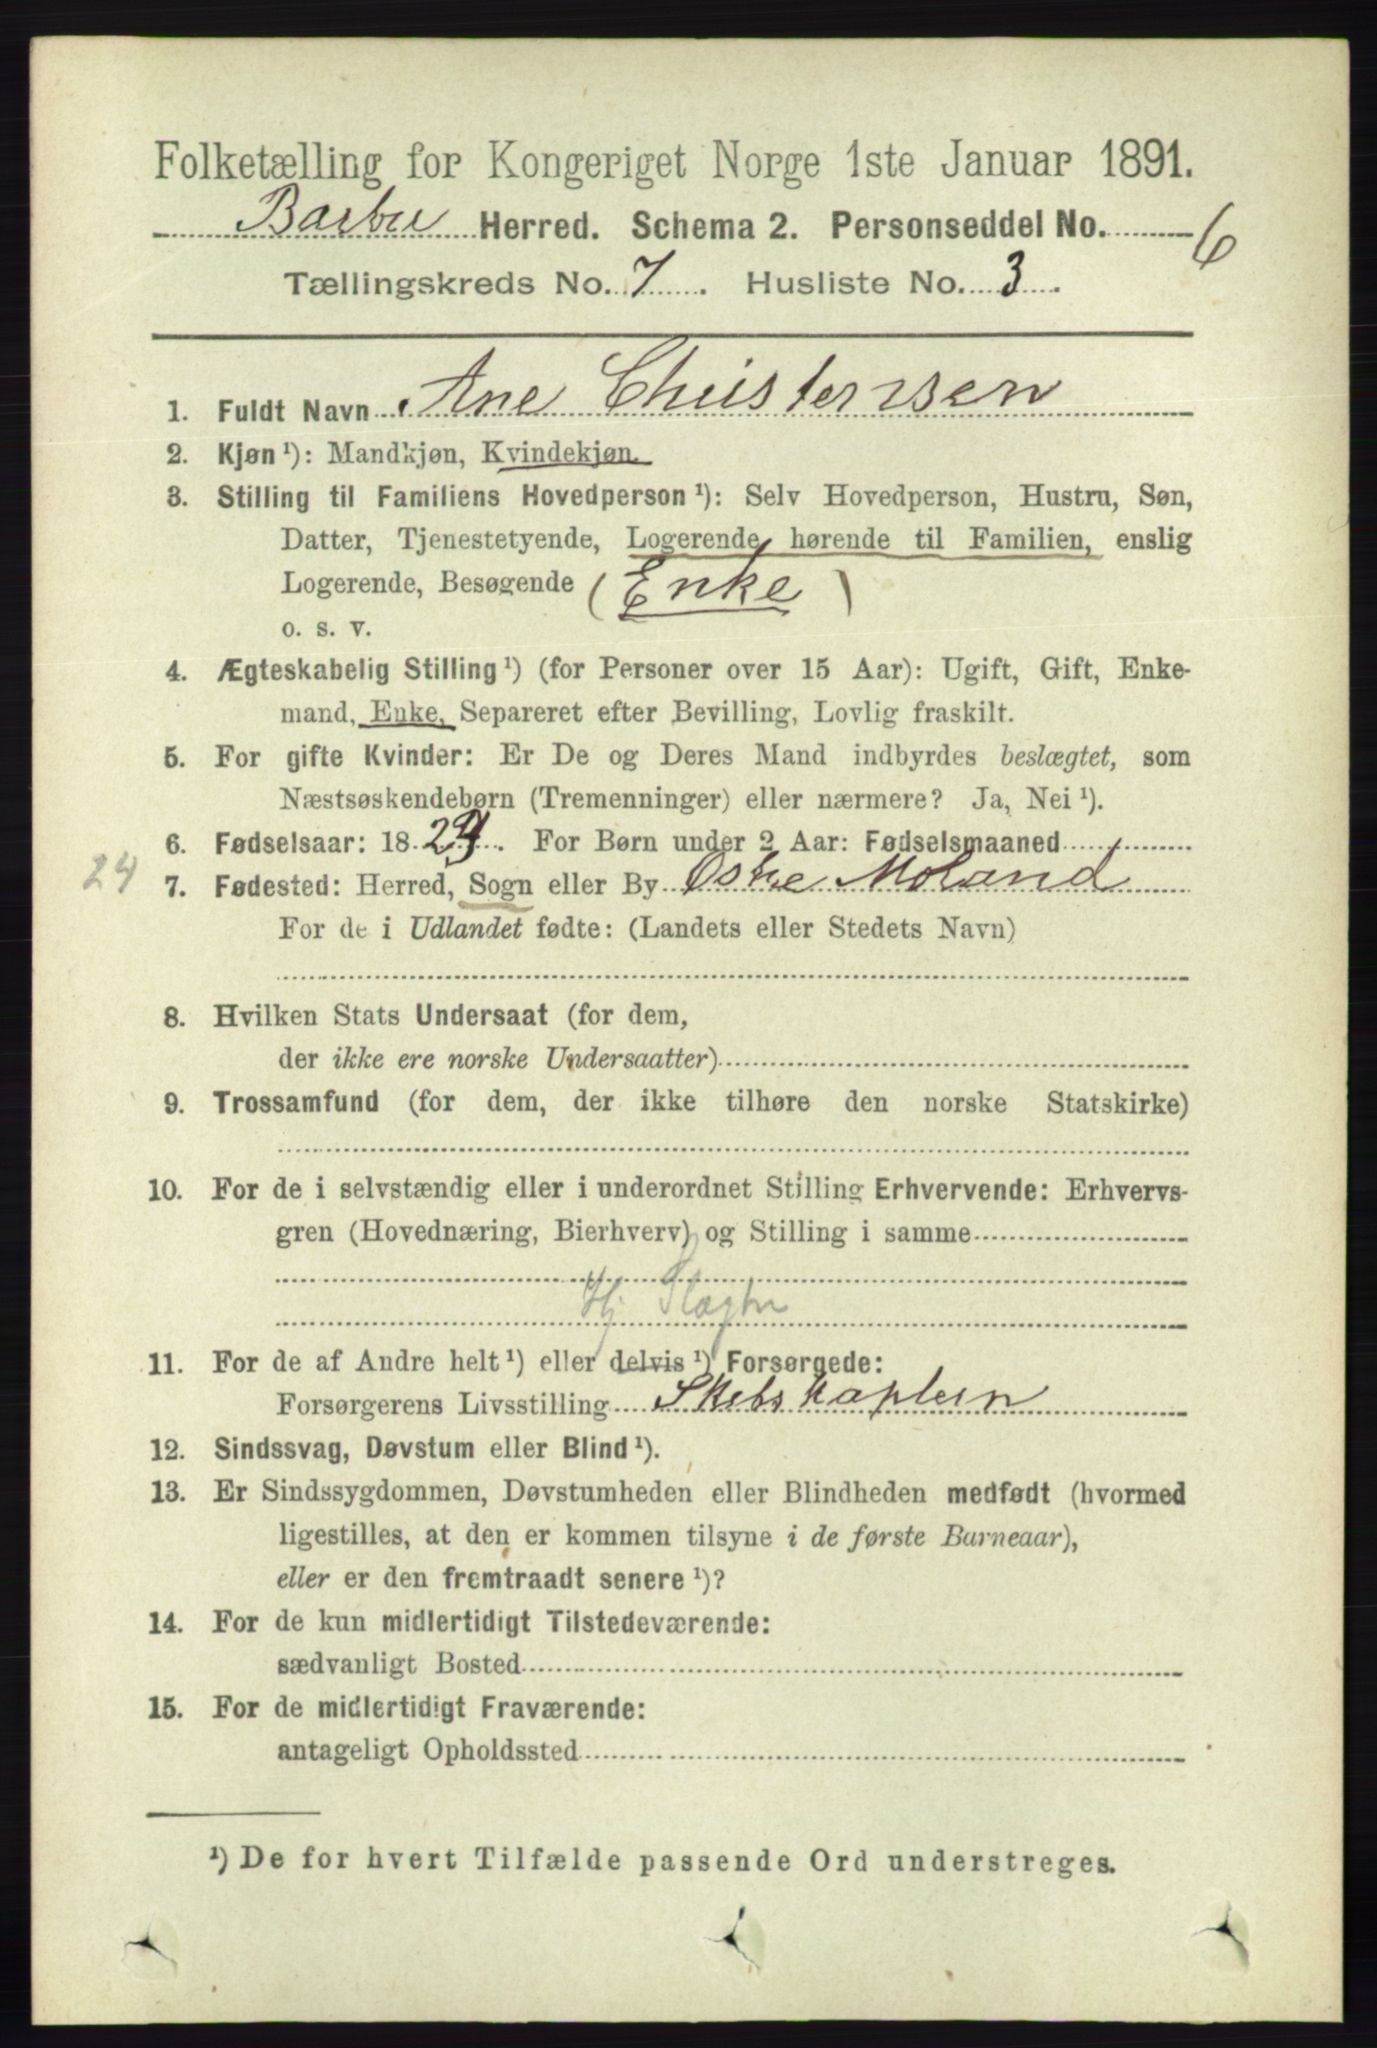 Folketælling for Kongeriget Norge 1ste Januar 1891.
Barbu Herred. Schema 2. Personseddel No. 6
Tællingskreds No. 7. Husliste No. 3.
1. Fuldt Navn Ane Christensen
2. Kjøn ¹): Mandkjøn, Kvindekjøn.
3. Stilling til Familiens Hovedperson ¹): Selv Hovedperson, Hustru, Søn,
Datter, Tjenestetyende, Logerende hørende til Familien, enslig
Logerende, Besøgende (Enke)
o. s. v.
4. Ægteskabelig Stilling ¹) (for Personer over 15 Aar): Ugift, Gift, Enke-
mand, Enke, Separeret efter Bevilling, Lovlig fraskilt.
5. For gifte Kvinder: Er De og Deres Mand indbyrdes beslægtet, som
Næstsøskendebørn (Tremenninger) eller nærmere? Ja, Nei ¹).
6. Fødselsaar: 1824. For Børn under 2 Aar: Fødselsmaaned
24
7. Fødested: Herred, Sogn eller By Østre Moland
For de i Udlandet fødte: (Landets eller Stedets Navn)
8. Hvilken Stats Undersaat (for dem,
der ikke ere norske Undersaatter)
9. Trossamfund (for dem, der ikke tilhøre den norske Statskirke)
10. For de i selvstændig eller i underordnet Stilling Erhvervende: Erhvervs-
gren (Hovednæring, Bierhverv) og Stilling i samme
Hj Slægtn
11. For de af Andre helt ¹) eller delvis ¹) Forsørgede:
Forsørgerens Livsstilling Skibskaptein
12. Sindssvag, Døvstum eller Blind ¹).
13. Er Sindssygdommen, Døvstumheden eller Blindheden medfødt (hvormed
ligestilles, at den er kommen tilsyne i de første Barneaar),
eller er den fremtraadt senere ¹)?
14. For de kun midlertidigt Tilstedeværende:
sædvanligt Bosted
15. For de midlertidigt Fraværende:
antageligt Opholdssted
¹) De for hvert Tilfælde passende Ord understreges.